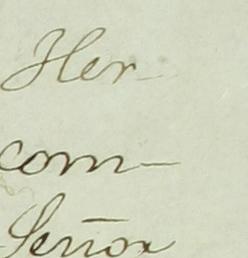 Her-
com-
Señor